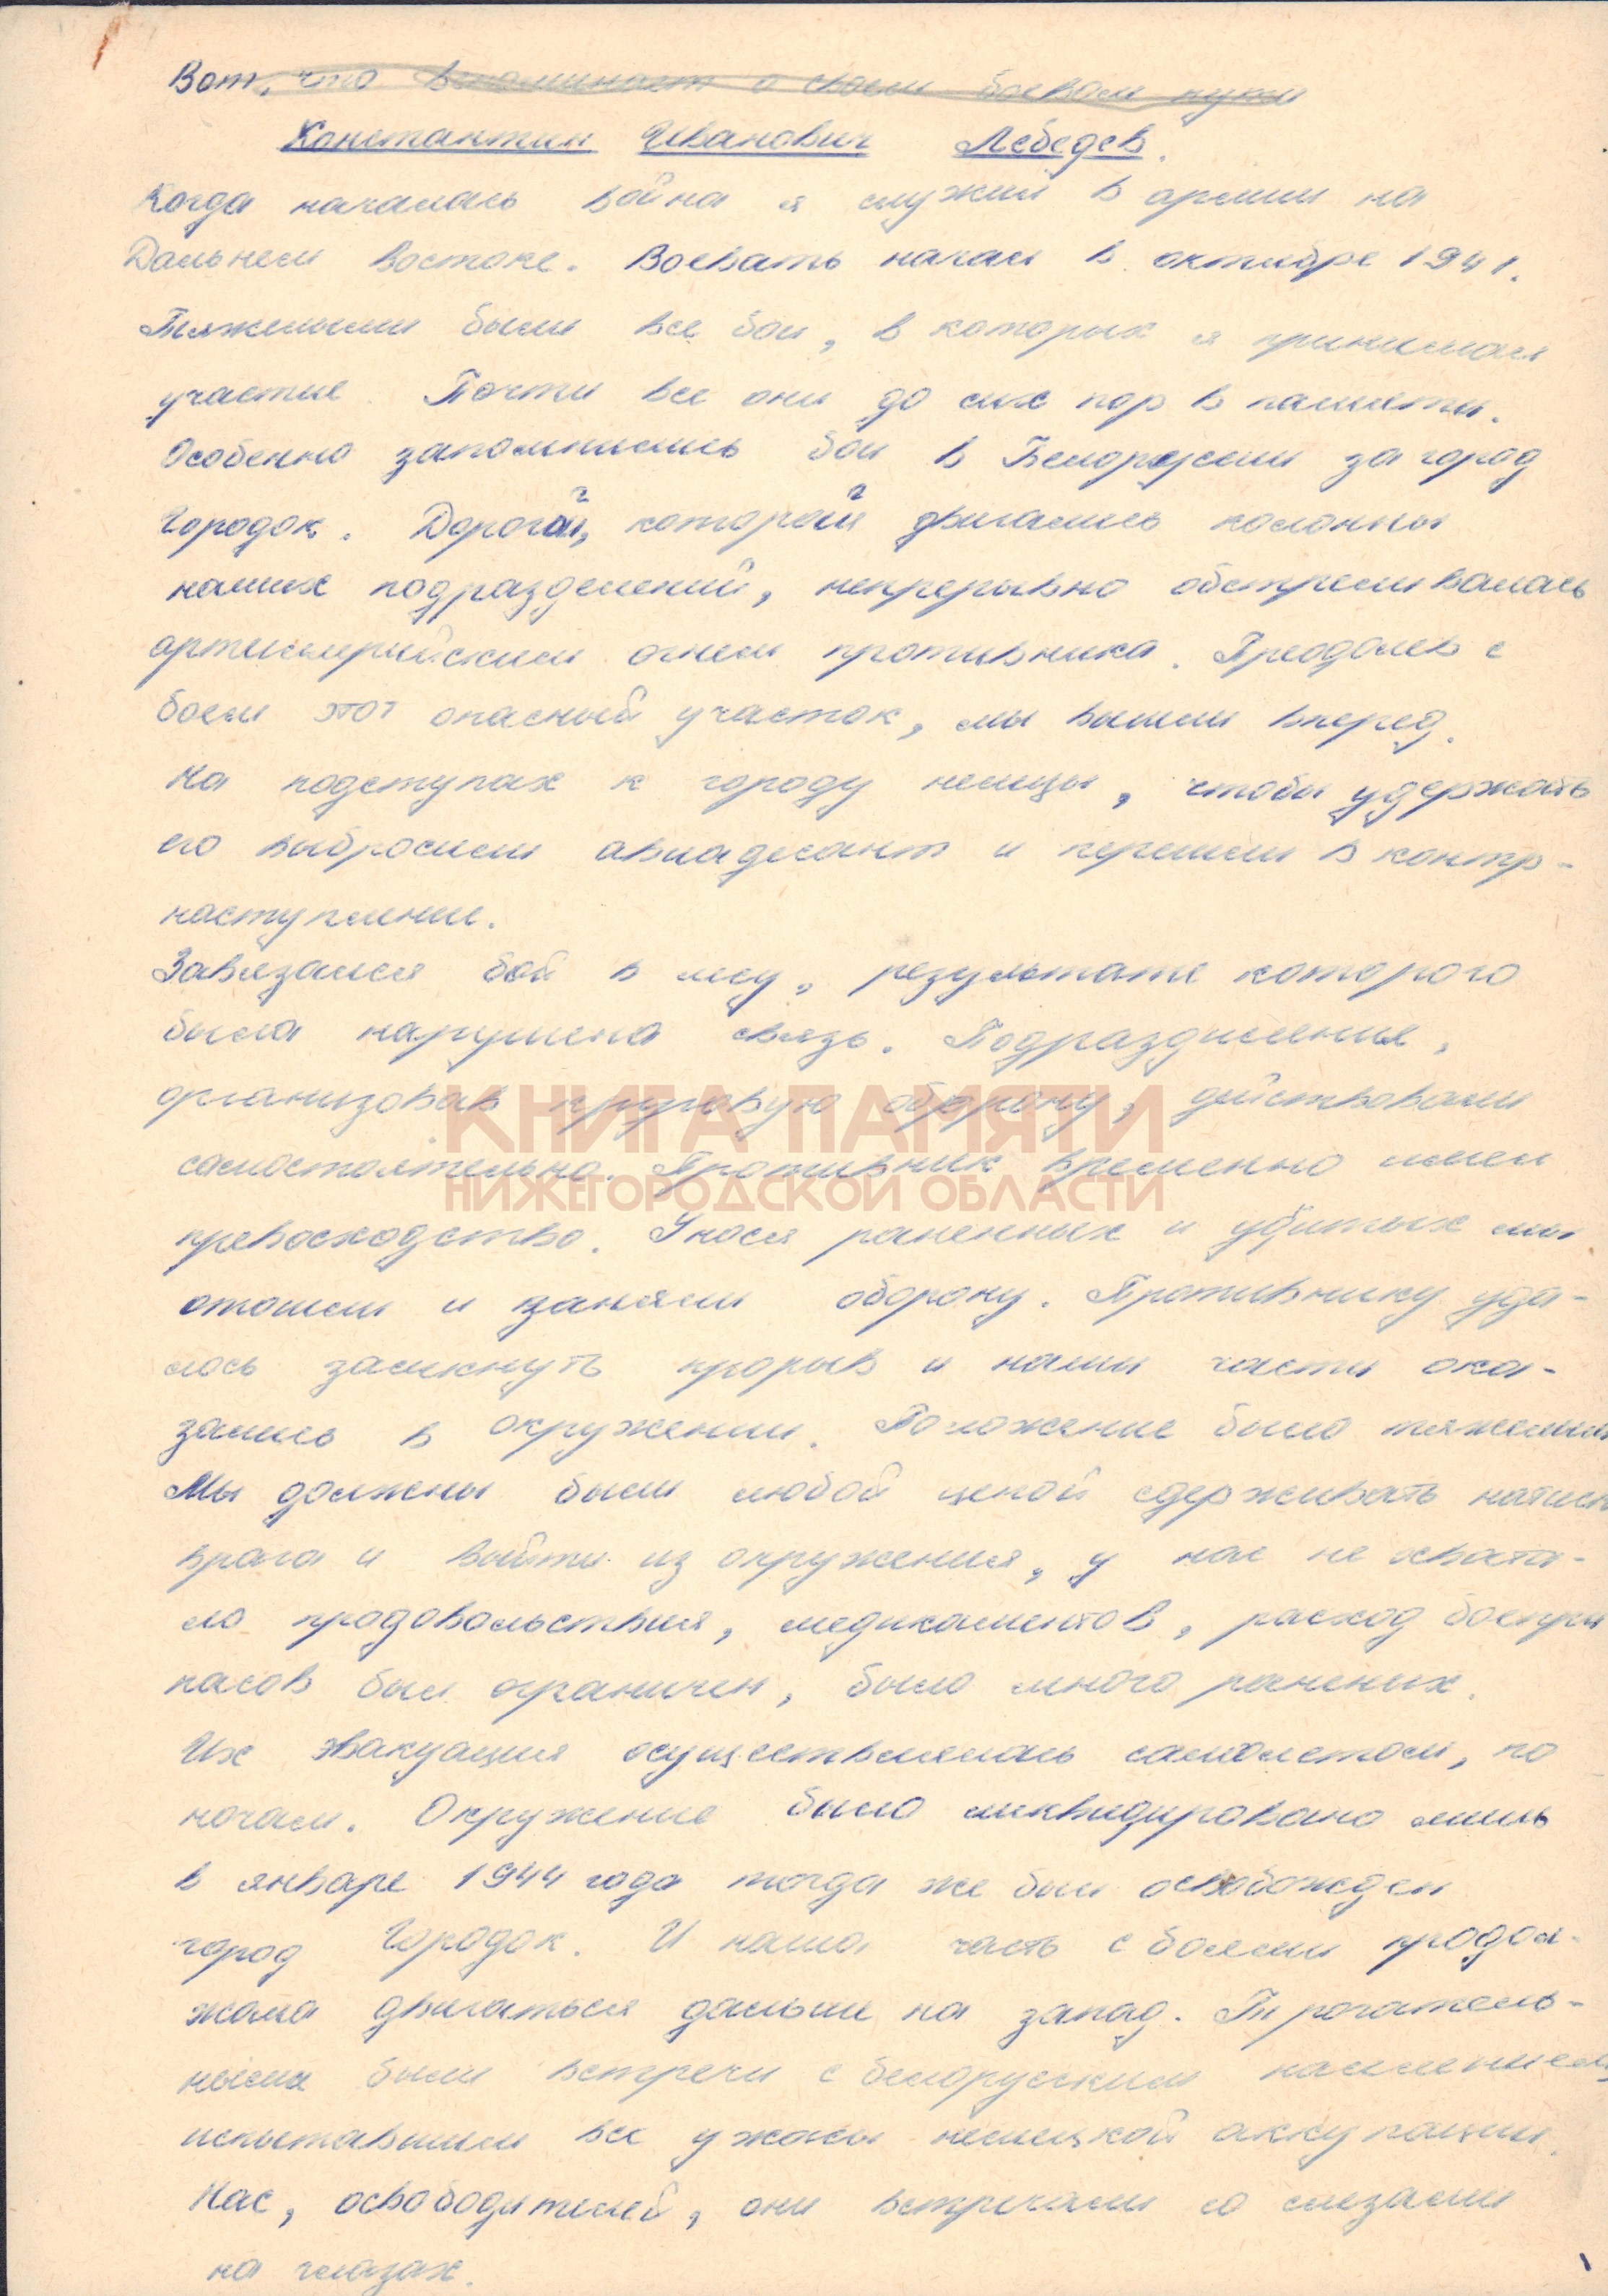 Вот, что вспоминает о своем боевом пути
Константин Иванович Лебедев.
Когда началась война я служил в армии на
Дальнем востоке. Воевать начал в октябре 1941.
Тяжелыми были все бои, в которых я принимал
участие. Почти все они до сих пор в памяти.
Особенно запомнились бои в Белоруссии за город
Городок. Дорога, которой двигались колонны
наших подразделений, непрерывно обстреливалась
артиллерийским огнем противника. Преодолев с
боем этот опасный участок, мы вышли вперед.
На подступах к городу немцы, чтобы удержать
его выбросили авиадесант и перешли в контр-
наступление.
Завязался бой в лесу, результате которого
была нарушена связь. Подразделения,
организовав круговую оборону, действовали
КНИГА ПАМЯТИ
самостоятельно. Противник временно имел
НИЖЕГОРОДСКОЙ ОБЛАСТИ
превосходство. Унося раненных и убитых мы
отошли и заняли оборону. Противнику уда-
лось замкнуть прорыв и наши части ока-
зались в окружении. Положение было тяжелым
Мы должны были любой ценой сдерживать натиск
врага и выйти из окружения, у нас не хвата-
ло продовольствия, медикаментов, расход боепри
пасов был ограничен, было много раненых.
Их эвакуация осуществлялась самолетом, по
ночам. Окружение было ликвидировано лишь
в январе 1944 года тогда же был освобожден
город Городок. И наша часть с боями продол-
жала двигаться дальше на запад. Трогатель-
ными были встречи с белорусским населением,
испытавшим все ужасы немецкой аккупации.
Нас, освободителей, они встречали со слезами
на глазах.